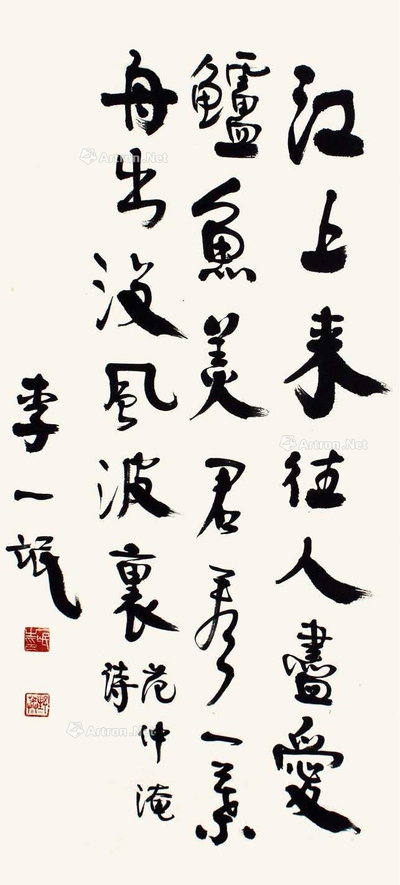 江上来往人盡愛
鱸魚美君看一葉
舟出没風波裏
范仲淹
诗
李一氓
Artron.Net
Artron.Net
Artron.Net